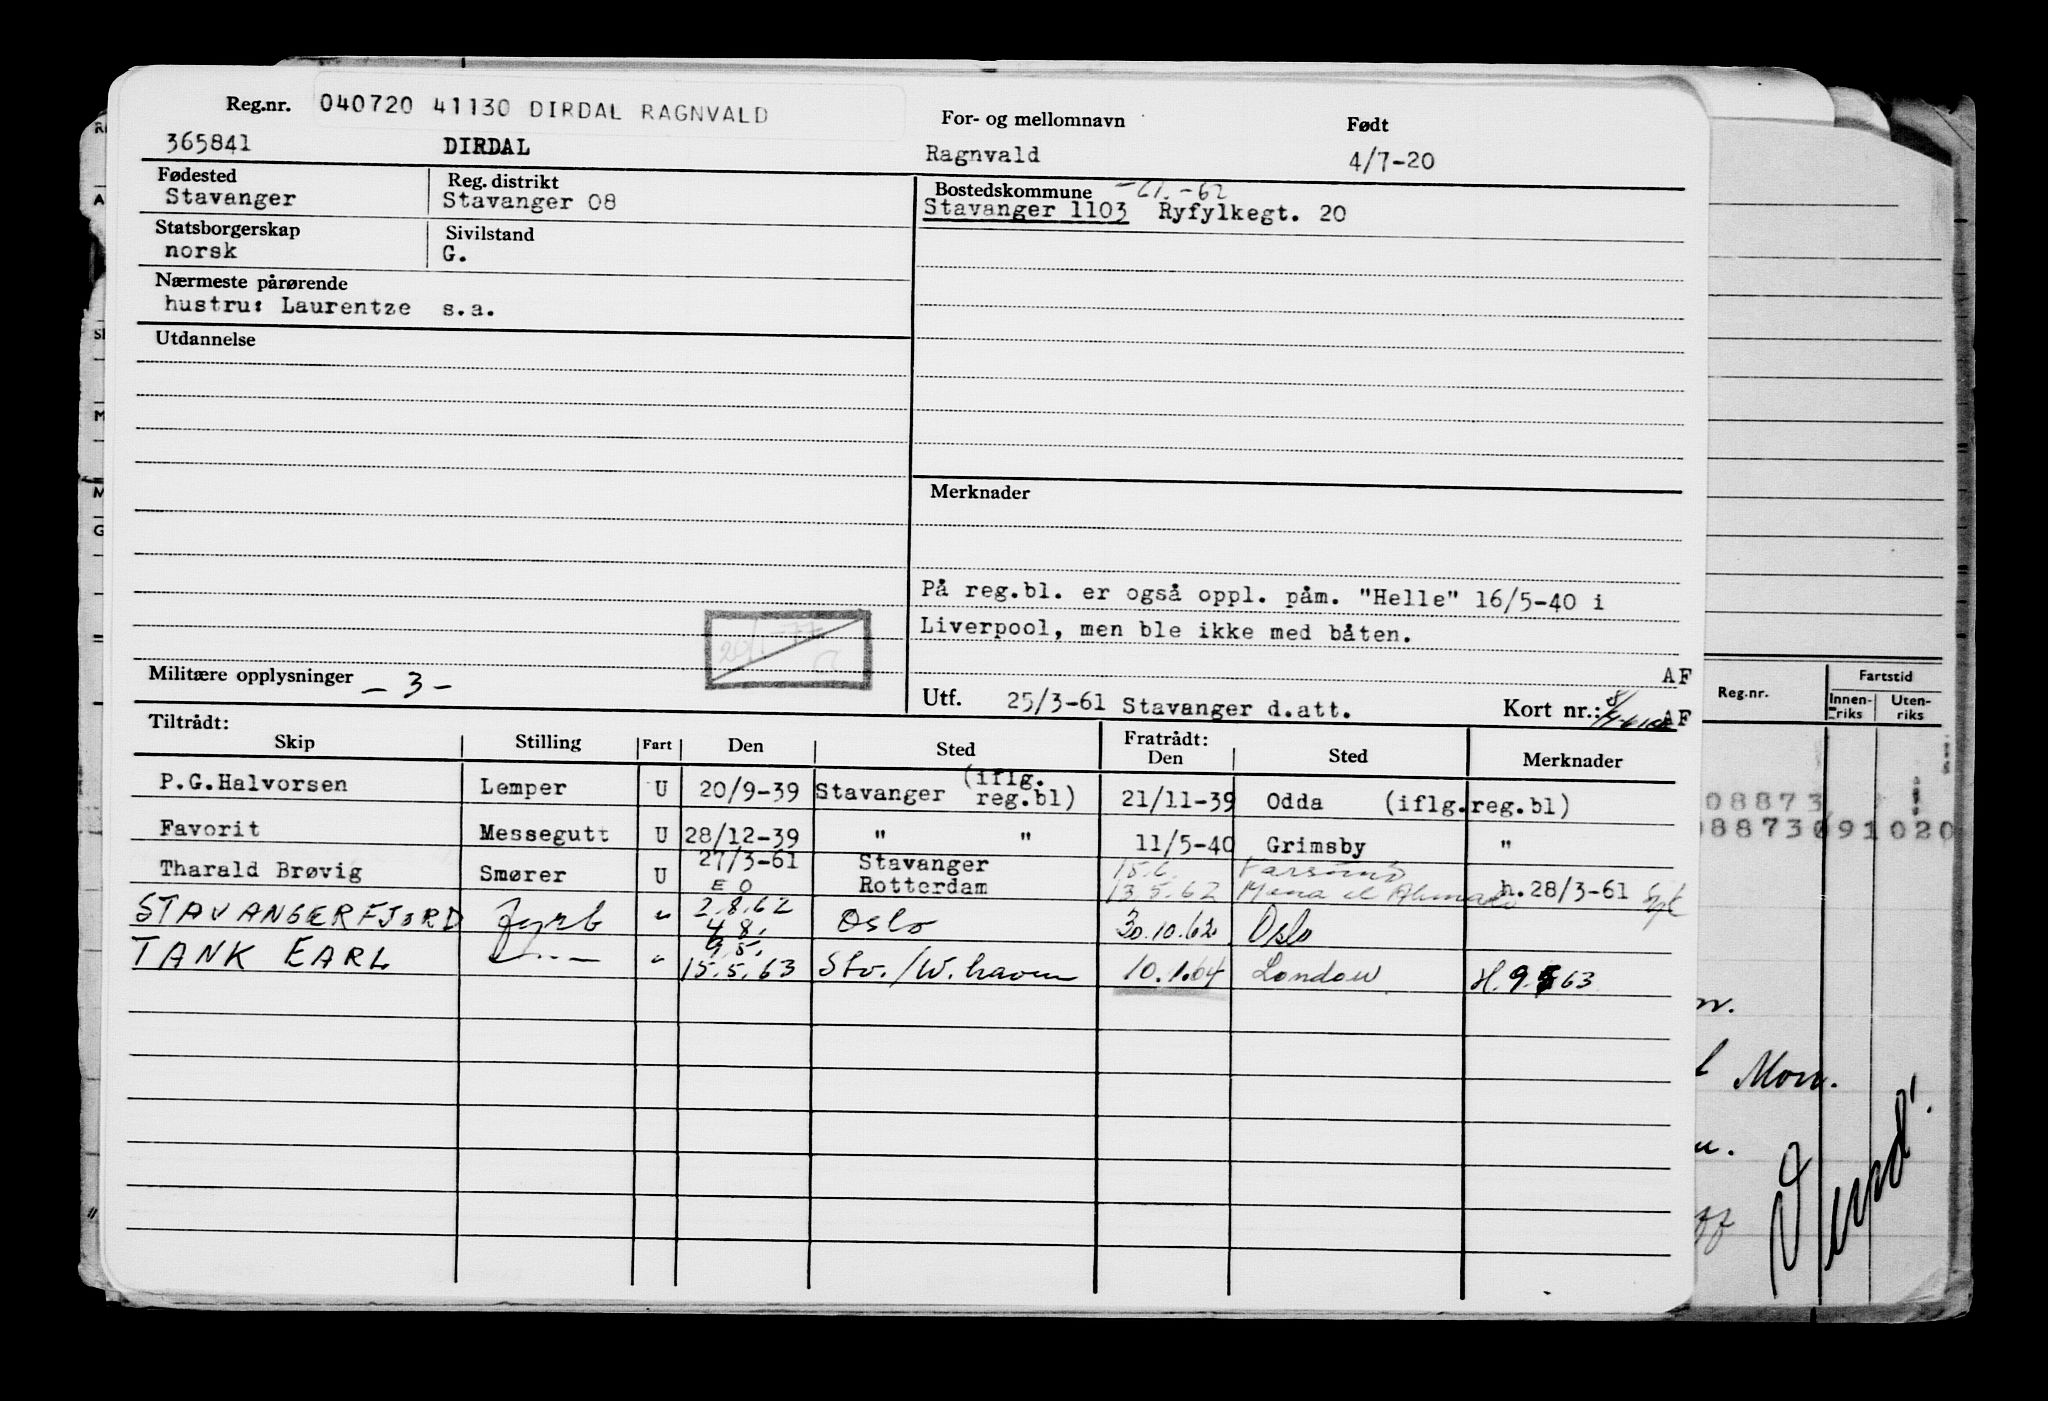 Reg.nr. 040720 41130 DIRDAL RAGNVALD For- og mellomnavn Født
365841 DIRDAL Ragnvald 4/7-20
Fødested Reg. distrikt Bostedskommune -61.-62
Stavanger Stavanger 08 Stavanger 1103 Ryfylkegt. 20
Statsborgerskap Sivilstand
norsk G.
Nærmeste pårørende
hustru: Laurentze s.a.
Utdannelse
Merknader
På reg.bl. er også oppl. påm. "Helle" 16/5-40 i
Liverpool, men ble ikke med båten.
AF
Militære opplysninger - 3 - Utf. 25/3-61 Stavanger d.att. Kort nr.: AF
Tiltrådt: Fratrådt:
Skip Stilling Fart Den Sted Den Sted Merknader
P.G.Halvorsen Lemper U 20/9-39 Stavanger (iflg. reg.bl) 21/11-39 Odda (iflg.reg.bl)
Favorit Messegutt U 28/12-39 " " 11/5-40 Grimsby "
Tharald Brøvig Smører U 27/3-61 Stavanger 15.6.
E O Rotterdam 13.5.62 Mena el h.28/3-61
STAVANGERFJORD Fyrb " 2.8.62 Oslo 30.10.62 Oslo
4.8.
TANK EARL —"— " 9.5. Stv./W.haven 10.1.64 London H. 9.5 63
15.5.63
Reg.nr. Fartstid
Innen-riks Uten-riks
08873
88730 91020
Mon.